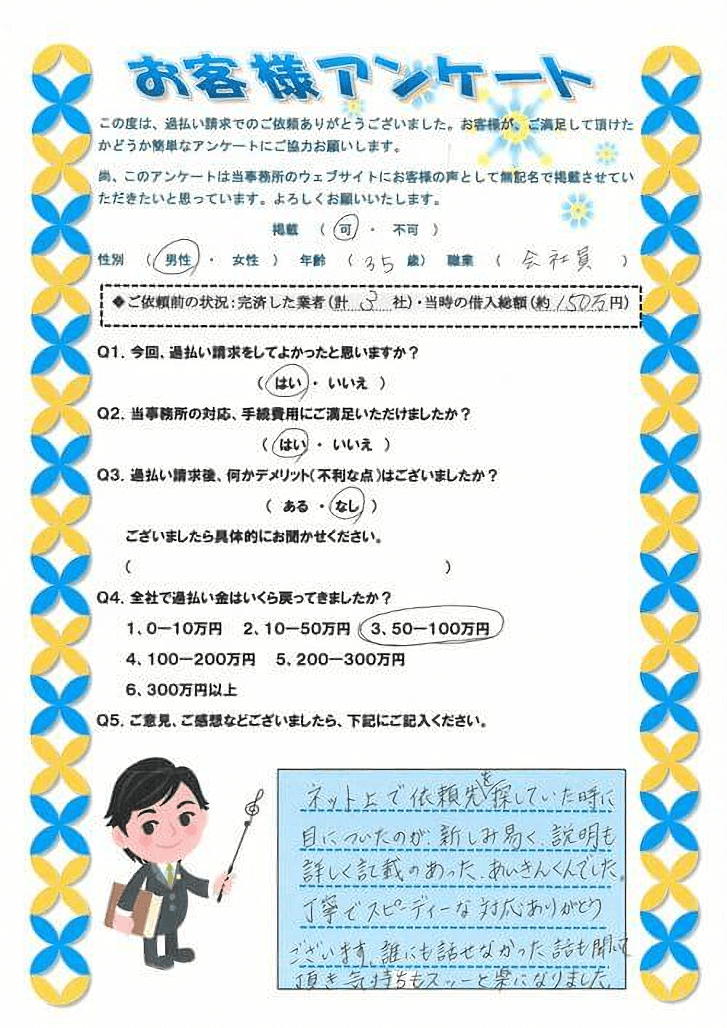 お客様アンケート
この度は、過払い請求でのご依頼ありがとうございました。お客様が、ご満足して頂けた
かどうか簡単なアンケートにご協力お願いします。
尚、このアンケートは当事務所のウェブサイトにお客様の声として無記名で掲載させてい
ただきたいと思っています。よろしくお願いいたします。
掲載 ( 可 ・ 不可 )
性別 ( 男性 ・ 女性 ) 年齢 ( 35 歳) 職業 ( 会社員 )
◆ご依頼前の状況:完済した業者(計 3 社)・当時の借入総額(約 150万 円)
Q1. 今回、過払い請求をしてよかったと思いますか?
( はい ・ いいえ )
Q2. 当事務所の対応、手続費用にご満足いただけましたか?
( はい ・ いいえ )
Q3. 過払い請求後、何かデメリット(不利な点)はございましたか?
( ある ・ なし )
ございましたら具体的にお聞かせください。
( )
Q4. 全社で過払い金はいくら戻ってきましたか?
1、0ー10万円 2、10ー50万円 3、50ー100万円
4、100ー200万円 5、200ー300万円
6、300万円以上
Q5. ご意見、ご感想などございましたら、下記にご記入ください。
ネット上で依頼先を探していた時に
目についたのが、新しみ易く、説明も
詳しく記載のあった、あいきんくんでした。
丁寧でスピーディーな対応ありがとう
ございます。誰にも話せなかった話も聞いて
頂き気持ちもスッーと楽になりました。